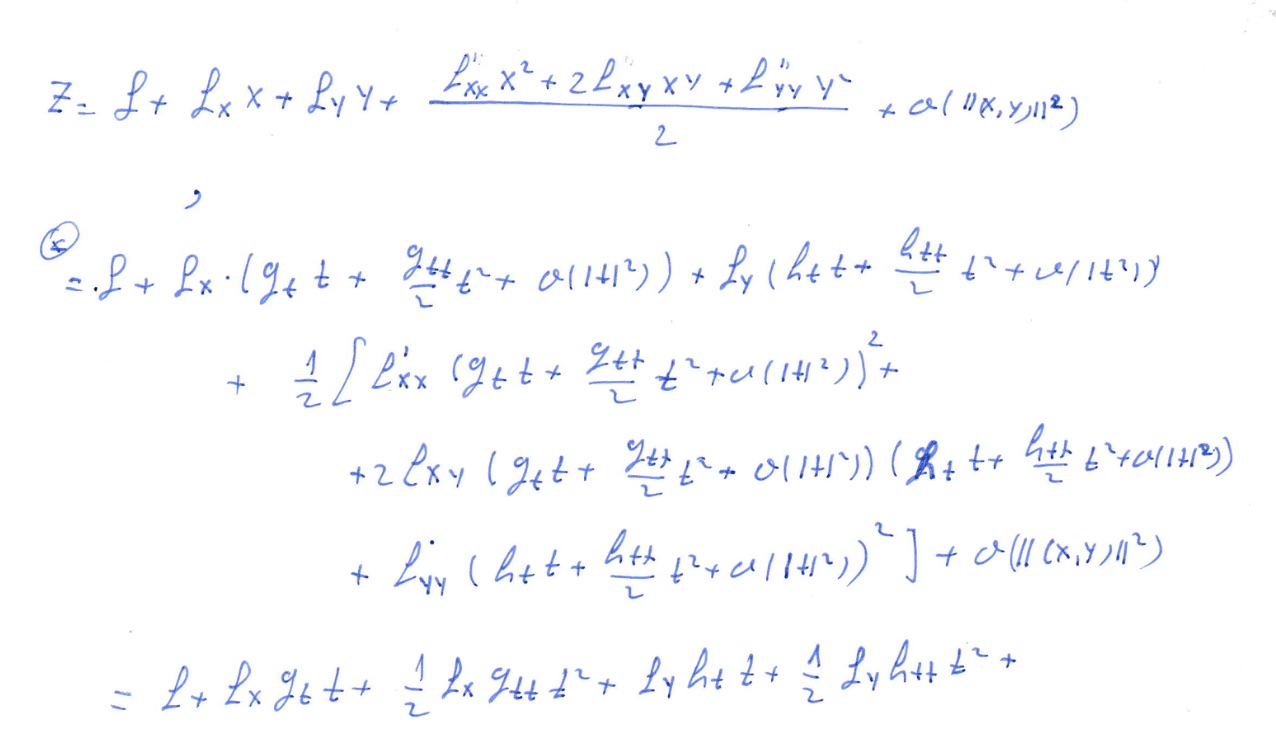 Z = f + f_x x + f_y y + (f''_xx x² + 2 f''_xy x y + f''_yy y²) / 2 + o(||(x,y)||²)
,
(*) = f + f_x · (g_t t + g_tt/2 t² + o(|t|²)) + f_y (h_t t + h_tt/2 t² + o(|t|²))
+ 1/2 [ f_xx (g_t t + g_tt/2 t² + o(|t|²))² +
+ 2 f_xy (g_t t + g_tt/2 t² + o(|t|²)) (h_t t + h_tt/2 t² + o(|t|²))
+ f_yy (h_t t + h_tt/2 t² + o(|t|²))² ] + o(||(x,y)||²)
= f + f_x g_t t + 1/2 f_x g_tt t² + f_y h_t t + 1/2 f_y h_tt t² +